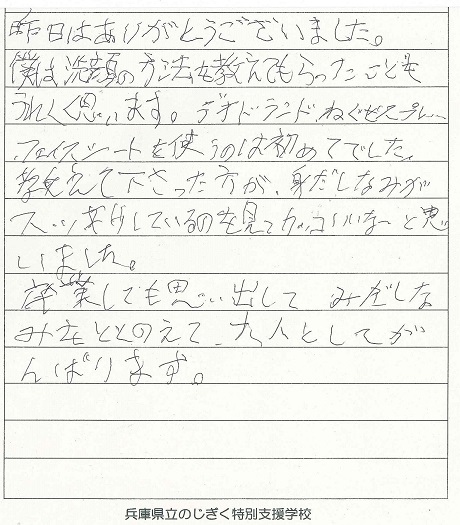 昨日はありがとうございました。
僕は洗顔の方法を教えてもらったことを
うれしく思います。デオドランド、ねぐせスプレー
フェイスシートを使うのは初めてでした。
教えて下さった方が、身だしなみが
スーツを着しているのを見てカッコいいなーと思
いました。
卒業しても思い出して みだしな
みをととのえて、大人としてが
んばります。
兵庫県立のじぎく特別支援学校